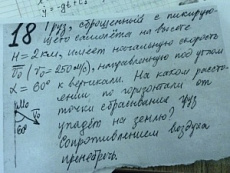 18 Груз, сброшенный с пикирую-
щего самолёта на высоте
H = 2 км, имеет начальную скорость
V₀ (V₀ = 250 м/с), направленную под углом
α = 60° к вертикали. На каком расст-
оянии по горизонтали от
точки сбрасывания груз
упадёт на землю?
Сопротивлением воздуха
пренебречь.
V₀
60°